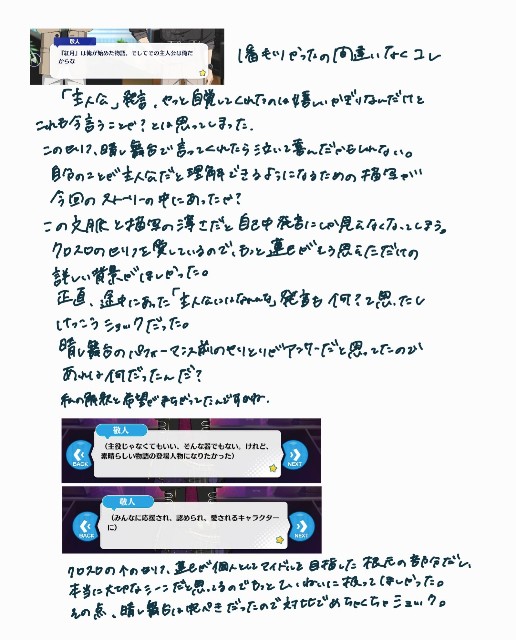 敬人
「『紅月』は俺が始めた物語。そしてその主人公は俺だ
からな
1番モリやったの間違いなくコレ
「主人公」発言。やっと自覚してくれたのは嬉しいかぎりなんだけど
これも今言うことか?とは思ってしまった。
このセリフ、晴れ舞台で言ってくれたら泣いて喜んだかもしれない。
自分のことが主人公だと理解できるようになるための描写が
今回のストーリーの中にあったか?
この文脈と描写の薄さだと自己中発言にしか見えなくなってしまう。
クロスロのセリフを愛しているので、もっと蓮巳がそう思えただけの
詳しい背景がほしかった。
正直、途中にあった「主人公にはなれんな」発言も何?て思ったし
けっこうショックだった。
晴れ舞台のパフォーマンス前のやりとりがアンサーだと思ってたのに
あれは何だったんだ?
私の解釈と希望がまちがってたんですかね。
敬人
(主役じゃなくてもいい、そんな器でもない。けれど、
素晴らしい物語の登場人物になりたかった)
BACK
NEXT
敬人
(みんなに応援され、認められ、愛されるキャラクター
に)
BACK
NEXT
クロスロの个のセリフ、蓮巳が個人としてアイドルを目指した根元の部分だし、
本当に大切なシーンだと思ってるのでもっとていねいに扱ってほしかった。
その点、晴れ舞台は神べきだったので対比でめちゃくちゃショック。